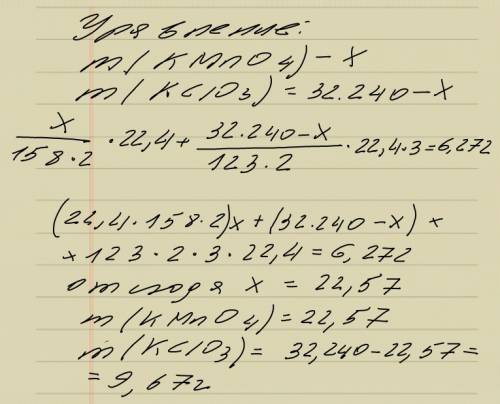 Уравнение:
m(KMnO4) - X
m(KClO3) = 32.240 - X
X/158·2 · 22,4 + 32.240-X/123·2 · 22,4·3 = 6,272
(22,4·158·2)x + (32.240-x) ×
× 123·2·3·22,4 = 6,272
отсюда x = 22,57
m(KMnO4) = 22,57
m(KClO3) = 32,240 - 22,57 =
= 9,67г